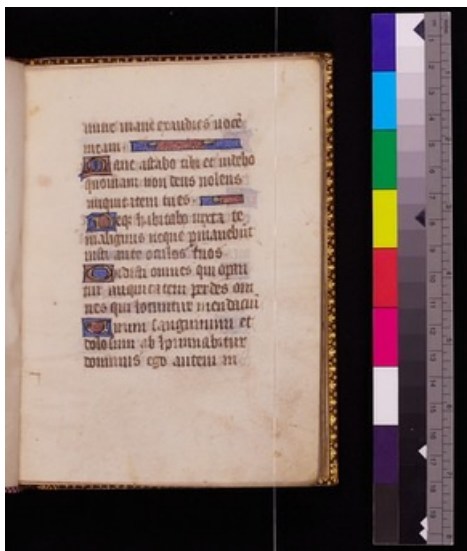 mane mane exaudies uocē
meam.
Mane astabo tibi et uidebo
quoniam non deus uolens
iniquitatem tu es.
Neq; habitabo iuxta te
malignus neque pmanebūt
iusti ante oculos tuos
Odisti omnes qui opan
tur iniquitatem perdes om
nes qui locuntur mendaciū
Uirum sanguinum et
dolosum ab hominabitur
dominus ego autem in